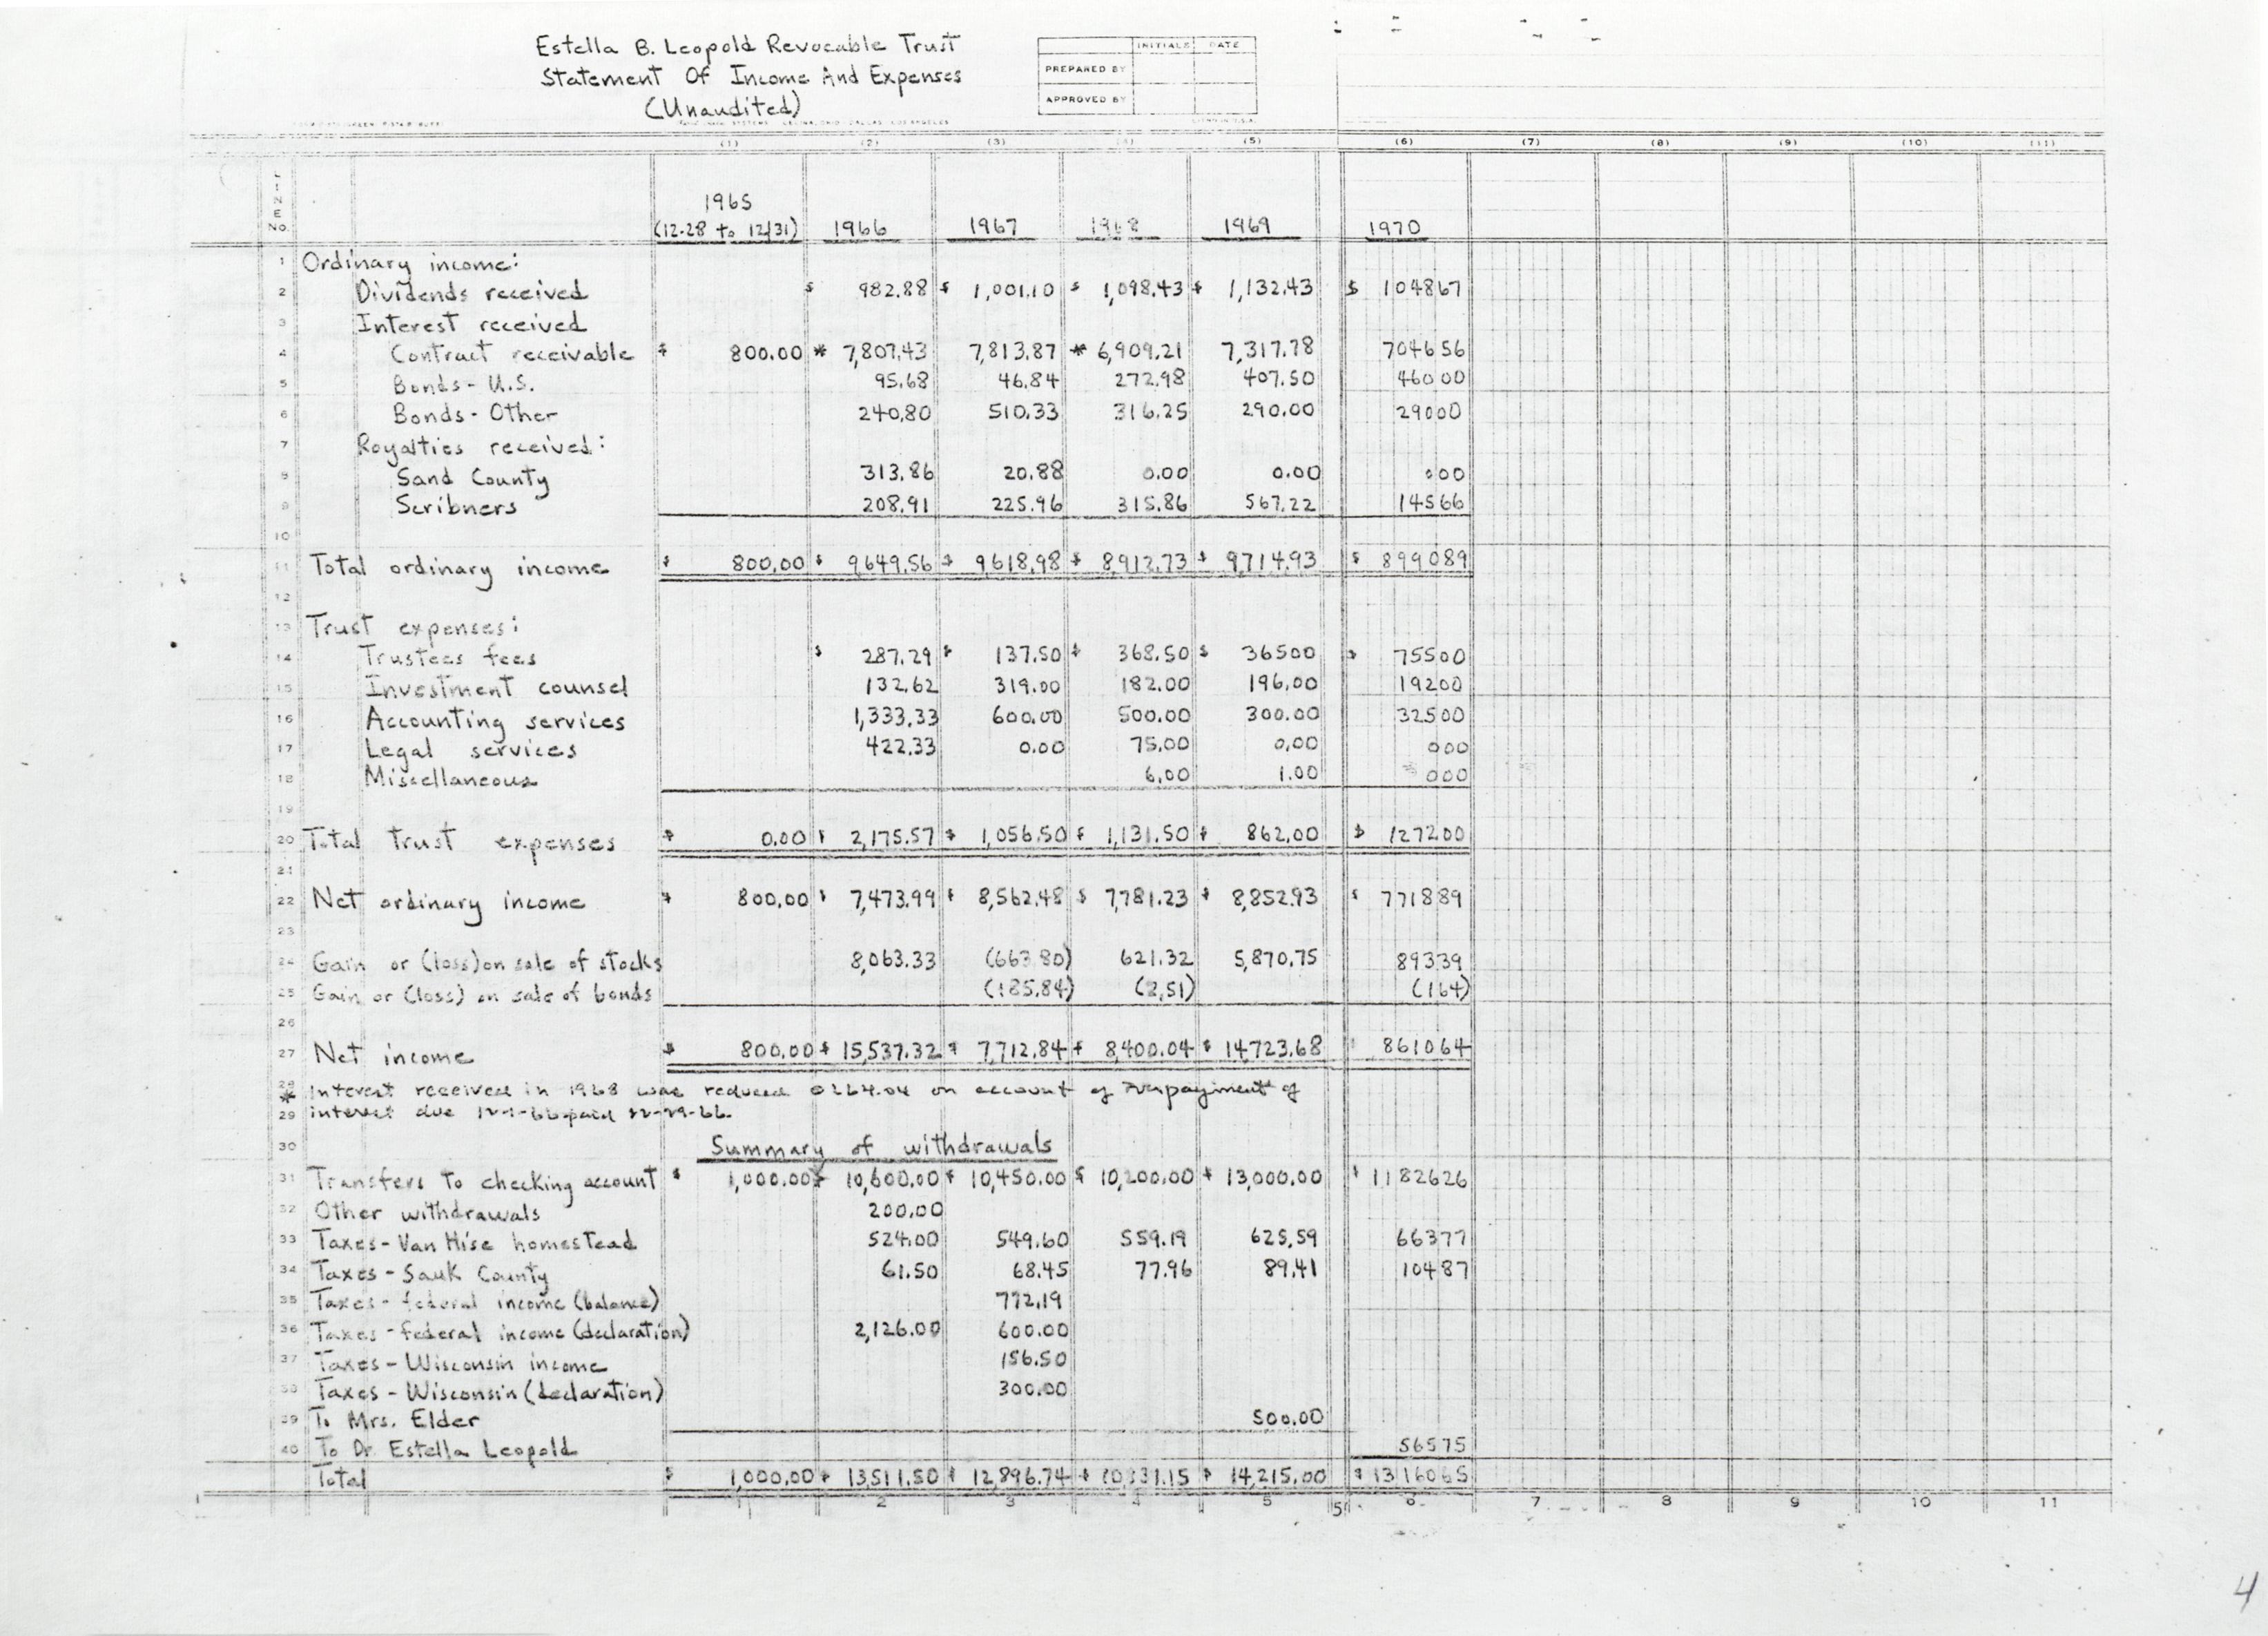 Estella B. Leopold Revocable Trust
Statement Of Income And Expenses
(Unaudited)
INITIALS DATE
PREPARED BY
APPROVED BY
(1) (2) (3) (4) (5) (6) (7) (8) (9) (10) (11)
LINE No.
1965
(12-28 to 12/31) 1966 1967 1968 1969 1970
1 Ordinary income:
2 Dividends received $ 982.88 $ 1,001.10 $ 1,098.43 $ 1,132.43 $ 104867
3 Interest received
4 Contract receivable $ 800.00 * 7,807.43 7,813.87 * 6,909.21 7,317.78 704656
5 Bonds - U.S. 95.68 46.84 272.98 407.50 46000
6 Bonds - Other 240.80 510.33 316.25 290.00 29000
7 Royalties received:
8 Sand County 313.86 20.88 0.00 0.00 000
9 Scribners 208.91 225.96 315.86 567.22 14566
10
11 Total ordinary income $ 800.00 $ 9649.56 $ 9618.98 $ 8,912.73 $ 9,714.93 $ 899089
12
13 Trust expenses:
14 Trustees fees $ 287.29 $ 137.50 $ 368.50 $ 36500 $ 75500
15 Investment counsel 132.62 319.00 182.00 196.00 19200
16 Accounting services 1,333.33 600.00 500.00 300.00 32500
17 Legal services 422.33 0.00 75.00 0.00 000
18 Miscellaneous 6.00 1.00 000
19
20 Total trust expenses $ 0.00 $ 2,175.57 $ 1,056.50 $ 1,131.50 $ 862.00 $ 127200
21
22 Net ordinary income $ 800.00 $ 7,473.99 $ 8,562.48 $ 7,781.23 $ 8,852.93 $ 771889
23
24 Gain or (loss) on sale of stocks 8,063.33 (663.80) 621.32 5,870.75 89339
25 Gain or (loss) on sale of bonds (185.84) (2.51) (164)
26
27 Net income $ 800.00 $ 15,537.32 $ 7,712.84 $ 8,400.04 $ 14,723.68 $ 861064
28 * Interest received in 1968 was reduced 264.04 on account of overpayment of
29 interest due 12-1-66 paid 12-29-66.
30 Summary of withdrawals
31 Transfers to checking account $ 1,000.00 $ 10,600.00 $ 10,450.00 $ 10,200.00 $ 13,000.00 $ 1182626
32 Other withdrawals 200.00
33 Taxes - Van Hise homestead 524.00 549.60 559.19 625.59 66377
34 Taxes - Sauk County 61.50 68.45 77.96 89.41 10487
35 Taxes - federal income (balance) 772.19
36 Taxes - federal income (declaration) 2,126.00 600.00
37 Taxes - Wisconsin income 156.50
38 Taxes - Wisconsin (declaration) 300.00
39 To Mrs. Elder 500.00
40 To Dr. Estella Leopold 56575
Total $ 1,000.00 $ 13,511.50 $ 12,896.74 $ 14,215.00 $ 1316065
1 2 3 4 5 6 7 8 9 10 11
4